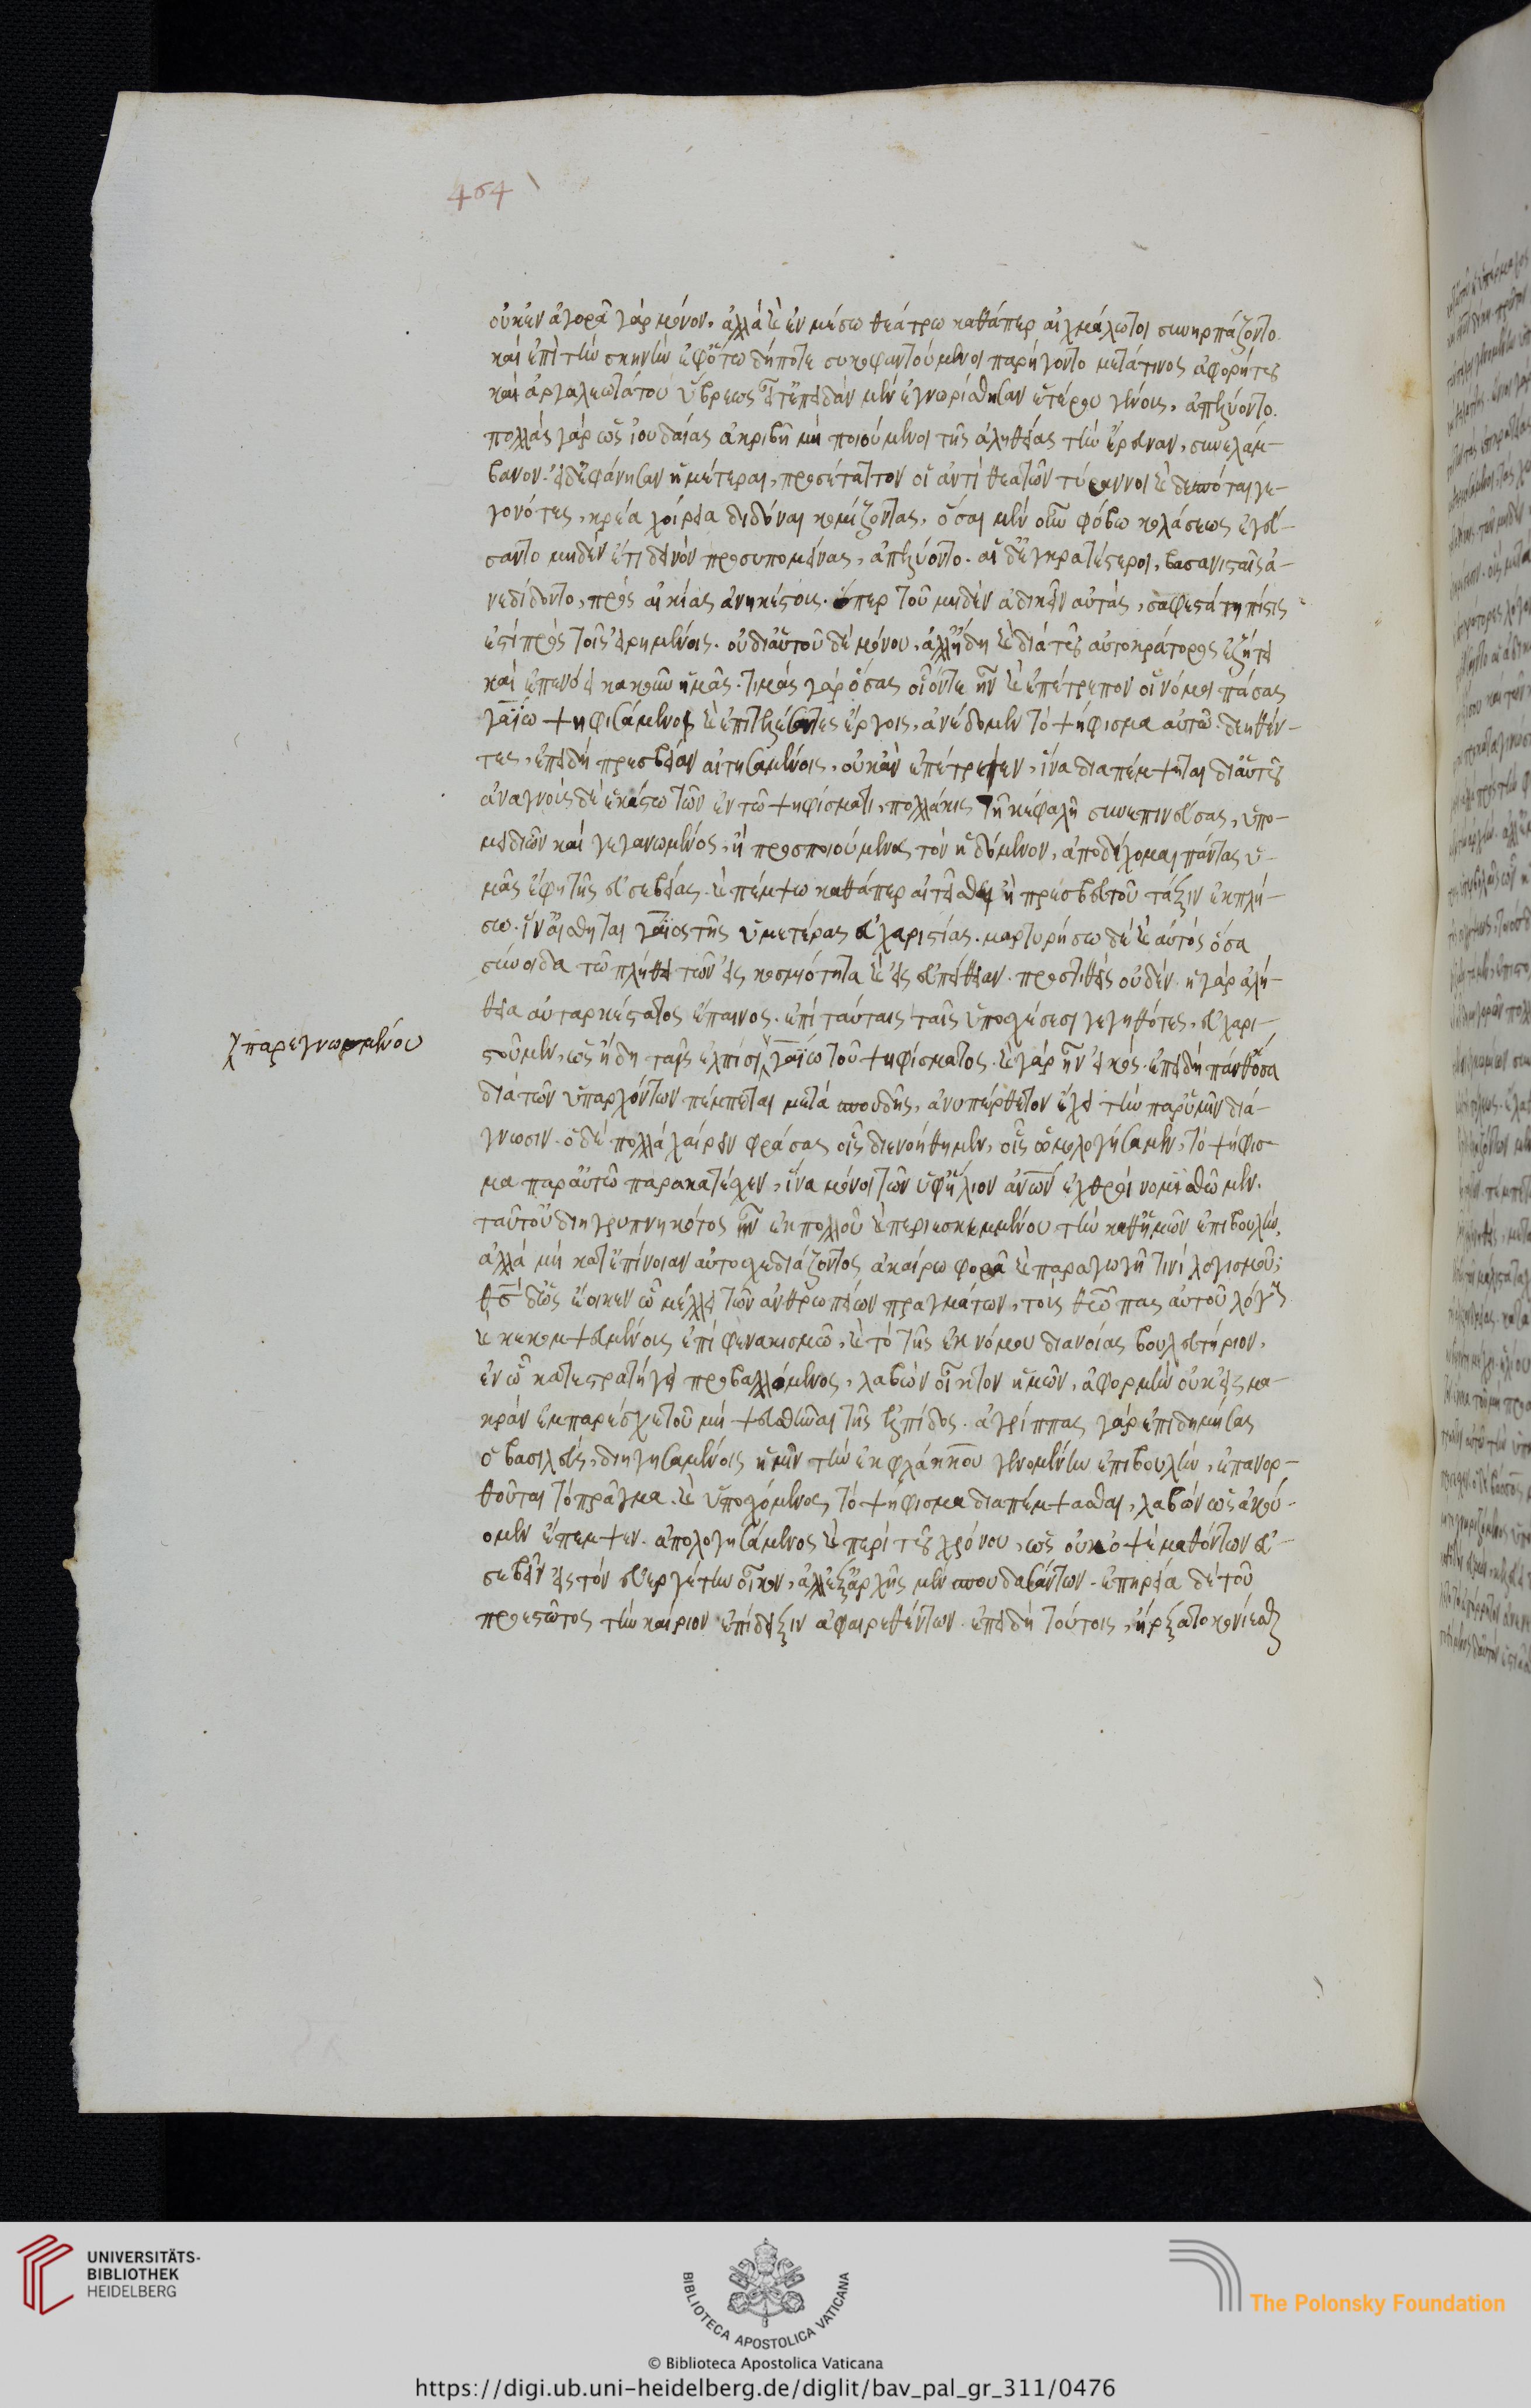 464
οὐκ ἐν ἀγορᾷ γὰρ μόνον, ἀλλὰ καὶ ἐν μέσω θεάτρω καθάπερ αἰχμάλωτοι συνηρπάζοντο.
καὶ ἐπὶ τὴν σκηνὴν ἐφότω δήποτε συκοφαντούμενοι παρήγοντο μετά τινος ἀφορήτου
καὶ ἀργαλεωτάτου ὕβρεως εἶτ' ἐπειδὰν μὲν ἐγνωρίσθησαν ἑτέρου γένους, ἀπελύοντο.
πολλὰς γὰρ ὡς ἰουδαίας ἀκριβῆ μὴ ποιούμενοι τῆς ἀληθείας τὴν ἔρευναν, συνελάμ-
βανον. εἰ δ' ἐφάνησαν ἡμέτεραι, προσέταττον οἱ ἀντὶ θεατῶν τύραννοι καὶ δεσπόται γε-
γονότες, κρέα χοίρεια διδόναι κομίζοντας, ὅσαι μὲν οὖν φόβω κολάσεως ἐγεύ-
σαντο μηδὲν ἔτι δεινὸν προσυπομείνασαι, ἀπελύοντο. αἱ δ' ἐγκρατέστεραι, βασανισταῖς ἀ-
νεδίδοντο, πρὸς αἰκίας ἀνηκέστους. ὅπερ τοῦ μηδὲν ἀδικεῖν αὐτὰς, σαφεστάτη πίστις
ἐστὶ πρὸς τοῖς εἰρημένοις. οὐ δι' αὑτοῦ δὲ μόνου, ἀλλ' ἤδη καὶ διὰ τοῦ αὐτοκράτορος ἐζήτει
καὶ ἐπενόει κακοῦν ἡμᾶς. τιμὰς γὰρ ὅσας οἷόντε ἦν καὶ ἐπέτρεπον οἱ νόμοι πάσας
γαΐω ψηφισάμενοι καὶ ἐπιτελέσαντες ἔργοις, ἀνέδομεν τὸ ψήφισμα αὐτῶ. δεηθέν-
τες, ἐπειδὴ πρεσβείαν αἰτησαμένοις, οὐκ ἂν ἐπέτρεψεν, ἵνα διαπέμψηται δι' αὑτοῦ
ἀναγνοὺς δὲ ἑκάστω τῶν ἐν τῶ ψηφίσματι, πολλάκις τῆ κεφαλῆ συνεπινεύσας, ὑπο-
μειδιῶν καὶ γεγανωμένος, ἢ προσποιούμενος τὸν ἡδόμενον, ἀποδέχομαι πάντας ὑ-
μᾶς ἔφη τῆς εὐσεβείας. καὶ πέμψω καθάπερ αἰτεῖσθε ἢ πρεσβευτοῦ τάξιν ἐκπλή-
σω. ἵν' αἴσθηται γάϊος τῆς ὑμετέρας εὐχαριστίας. μαρτυρήσω δὲ καὶ αὐτὸς ὅσα
σύνοιδα τῶ πλήθει τῶν εἰς κοσμιότητα καὶ εἰς εὐπείθειαν. προστιθεὶς οὐδέν. ἡ γὰρ ἀλή-
θεια αὐταρκέστατος ἔπαινος. ἐπὶ ταύταις ταῖς ὑποσχέσεσι γεγηθότες, εὐχαρι-
γρ παρεγνωσμένου
στοῦμεν, ὡς ἤδη ταῖς ἐλπίσι γαΐω τοῦ ψηφίσματος. καὶ γὰρ ἦν εἰκός. ἐπειδὴ πάνθ' ὅσα
διὰ τῶν ὑπαρχόντων πέμπεται μετὰ σπουδῆς, ἀνυπέρθετον ἔχει τὴν παρ' ὑμῖν διά-
γνωσιν. ὁ δὲ πολλὰ χαίρειν φράσας οἷς διενοήθημεν, οἷς ὡμολογήσαμεν, τὸ ψήφισ-
μα παρ' αὑτῶ παρακατέχεν, ἵνα μόνοι τῶν ὑφ' ἥλιον ἀνων ἐχθροὶ νομισθῶμεν.
ταῦτ' οὐ διηγρυπνηκότος ἦν ἐκ πολλοῦ καὶ περιεσκεμμένου τὴν καθ' ἡμῶν ἐπιβουλὴν,
ἀλλὰ μὴ κατ' ἐπίνοιαν αὐτοσχεδιάζοντος ἀκαίρω φορᾷ καὶ παραγωγῆ τινὶ λογισμοῦ;
θσ δ' ὡς ἔοικεν ὧ μέλλει τῶν ἀνθρωπείων πραγμάτων, τοὺς θῶπας αὐτοῦ λόγους
καὶ κεκομψευμένους ἐπὶ φενακισμῶ, καὶ τὸ τῆς ἐκνόμου διανοίας βουλευτήριον,
ἐν ὧ κατεστρατήγει προβαλλόμενος, λαβὼν οἶκτον ἡμῶν, ἀφορμὴν οὐκ εἰς μα-
κρὰν ἐμπαρέσχε τοῦ μὴ ψευσθῆναι τῆς ἐλπίδος. ἀγρίππας γὰρ ἐπιδημήσας
ὁ βασιλεὺς, διηγησαμένοις ἡμῖν τὴν ἐκ φλάκκου γενομένην ἐπιβουλὴν, ἐπανορ-
θοῦται τὸ πρᾶγμα. καὶ ὑποσχόμενος τὸ ψήφισμα διαπέμψασθαι, λαβὼν ὡς ἀκού-
ομεν ἔπεμψεν. ἀπολογησάμενος καὶ περὶ τοῦ χρόνου, ὡς οὐκ ὀψὲ μαθόντων εὐ-
σεβεῖν εἰς τὸν εὐεργέτην οἶκον, ἀλλ' ἐξ ἀρχῆς μὲν σπουδασάντων. ἐπηρεία δὲ τοῦ
προεστῶτος τὴν καίριον ἐπίδειξιν ἀφαιρεθέντων. ἐπειδὴ τούτοις, ἤρξατο κονίεσθαι
UNIVERSITÄTS-
BIBLIOTHEK
HEIDELBERG
BIBLIOTECA APOSTOLICA VATICANA
The Polonsky Foundation
© Biblioteca Apostolica Vaticana
https://digi.ub.uni-heidelberg.de/diglit/bav_pal_gr_311/0476